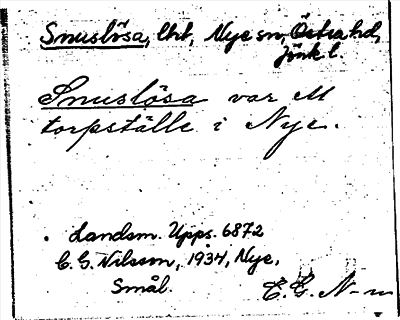 Snuslösa, lht, Nye sn, Östra hd,
Jönk l.
Snuslösa var ett
torpställe i Nye.
Landsm. Upps. 6872
C. G. Nilsson, 1934, Nye,
Smål.
C. G. N-n